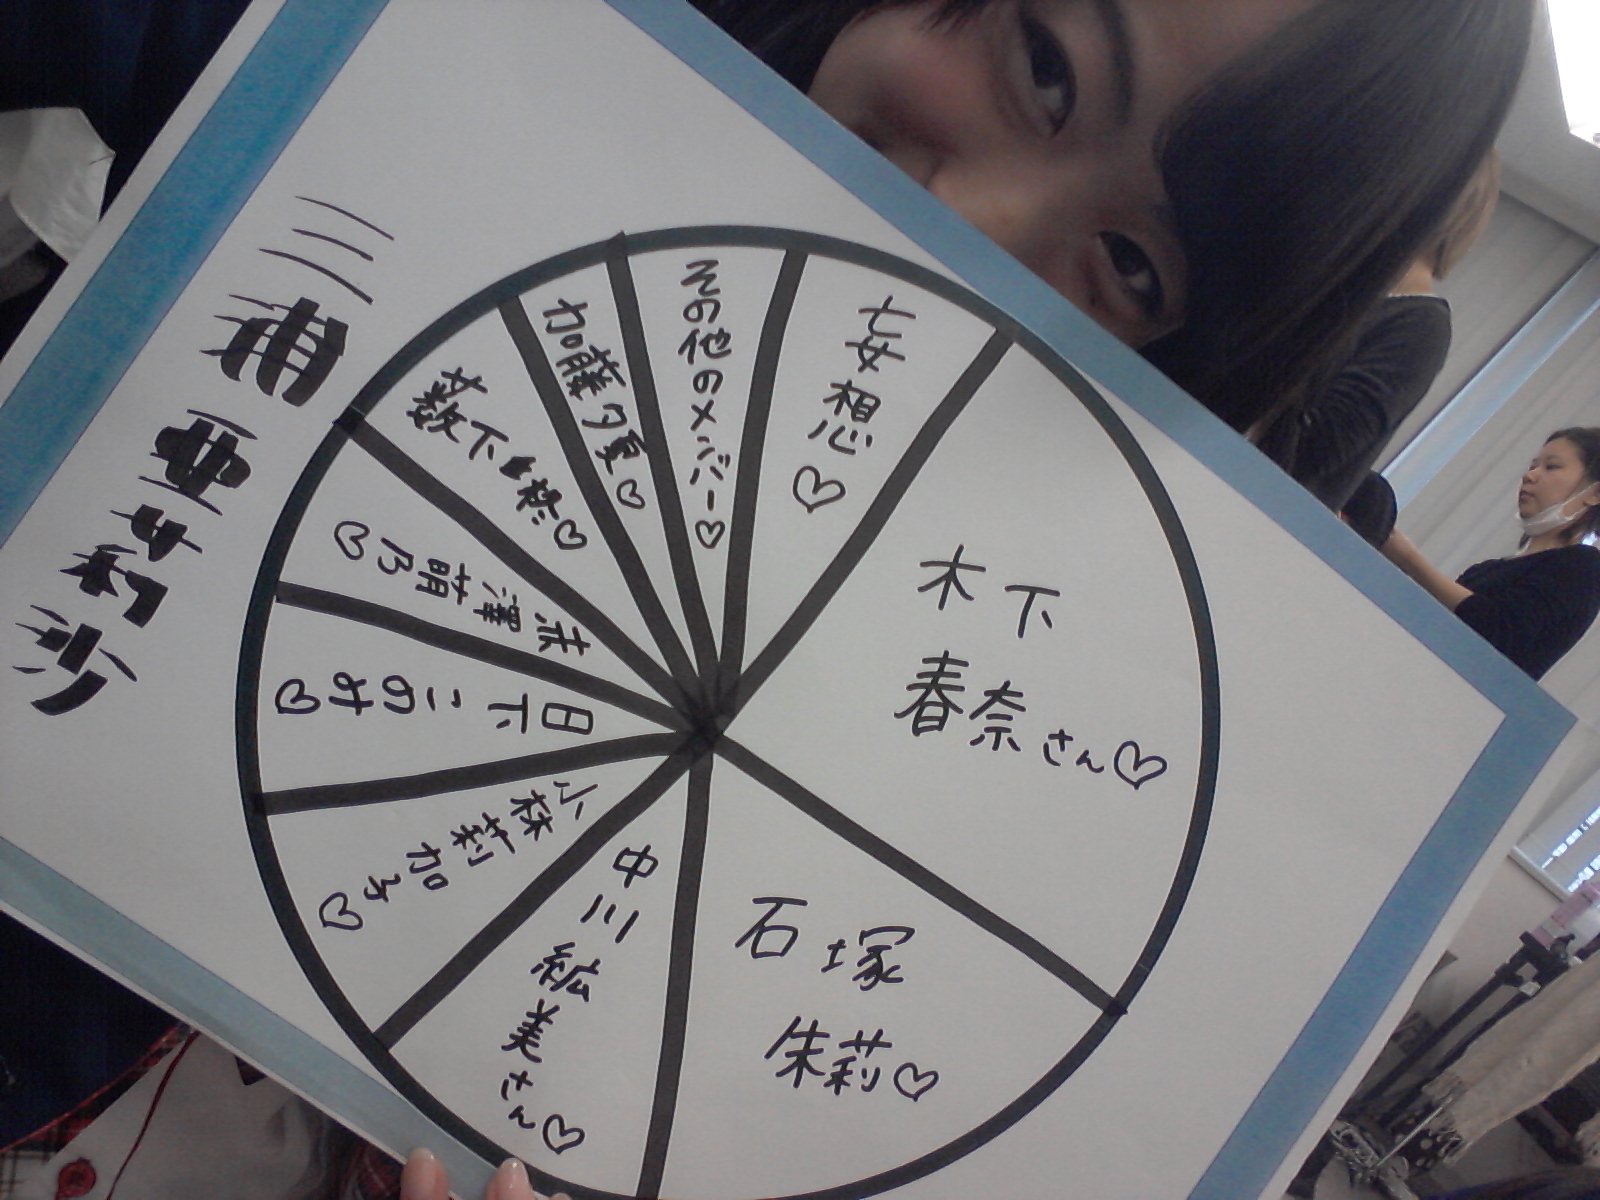 三浦亜莉沙
木下
春奈さん♡
石塚
朱莉♡
中川紘美さん♡
小林莉加子♡
日下このみ♡
赤澤萌乃♡
薮下柊♡
加藤夕夏♡
その他のメンバー♡
妄想♡